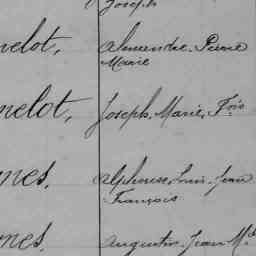 Joseph
velot, Alexandre, Pierre
Marie
nelot, Joseph, Marie, Fois
nes, Alphonse, Louis, Jean
François
nes, Augustin, Jean Mie